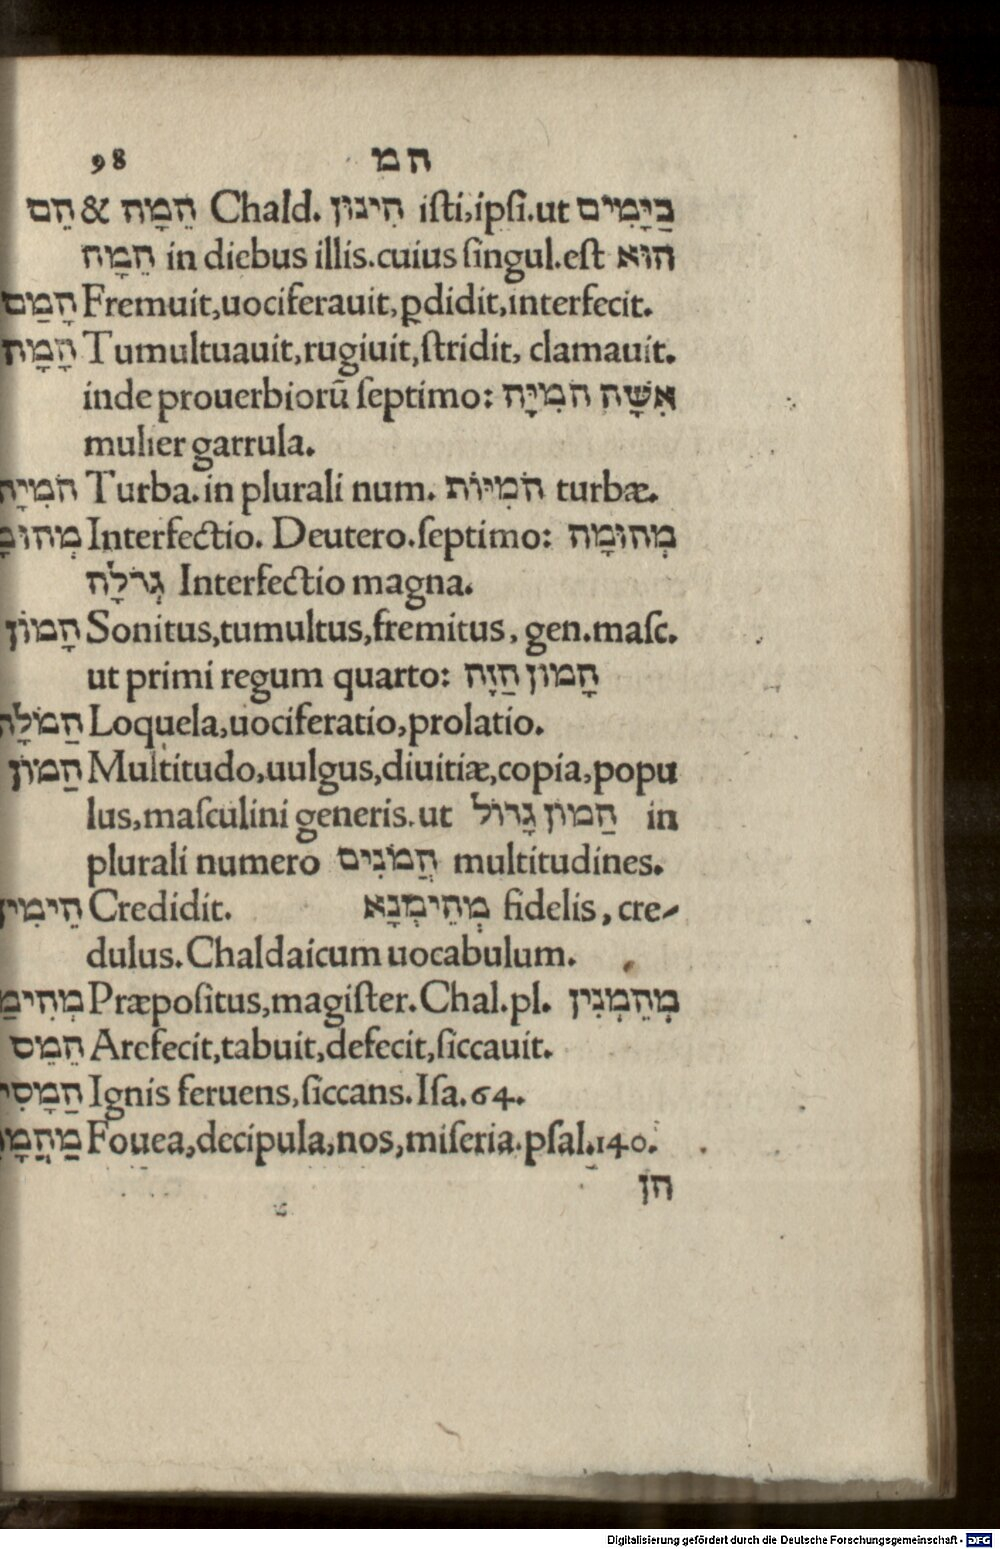 98 המ
הֵם & הֵמָּה Chald. הִינוּן iſti,ipſi.ut בַּיָּמִים
הֵמָּה in diebus illis.cuius ſingul.eſt הוּא
הָמַם Fremuit,uociferauit,ꝑdidit,interfecit.
הָמָה Tumultuauit,rugiuit,ſtridit, clamauit.
inde prouerbiorū ſeptimo: אִשָּׁה הֹמִיָּה
mulier garrula.
Turba.in plurali num. הֹמִיּוֹת turbæ.
Interfectio. Deutero.ſeptimo: מְהוּמָה
גְּדֹלָה Interfectio magna.
הָמוֹן Sonitus,tumultus,fremitus, gen.maſc.
ut primi regum quarto: הָמוֹן הַזֶּה
Loquela,uociferatio,prolatio.
הַמוֹן Multitudo,uulgus,diuitiæ,copia,popu
lus,maſculini generis.ut הַמוֹן גָּדוֹל in
plurali numero הֲמֹנִים multitudines.
הֵימִין Credidit. מְהֵימְנָא fidelis, cre-
dulus.Chaldaicum uocabulum.
Præpoſitus,magiſter.Chal.pl. מְהֵמְנִין
הֵמֵס Arefecit,tabuit,defecit,ſiccauit.
Ignis feruens,ſiccans.Iſa.64.
Fouea,decipula,nos,miſeria.pſal.140.
הן
Digitalisierung gefördert durch die Deutsche Forschungsgemeinschaft - DFG